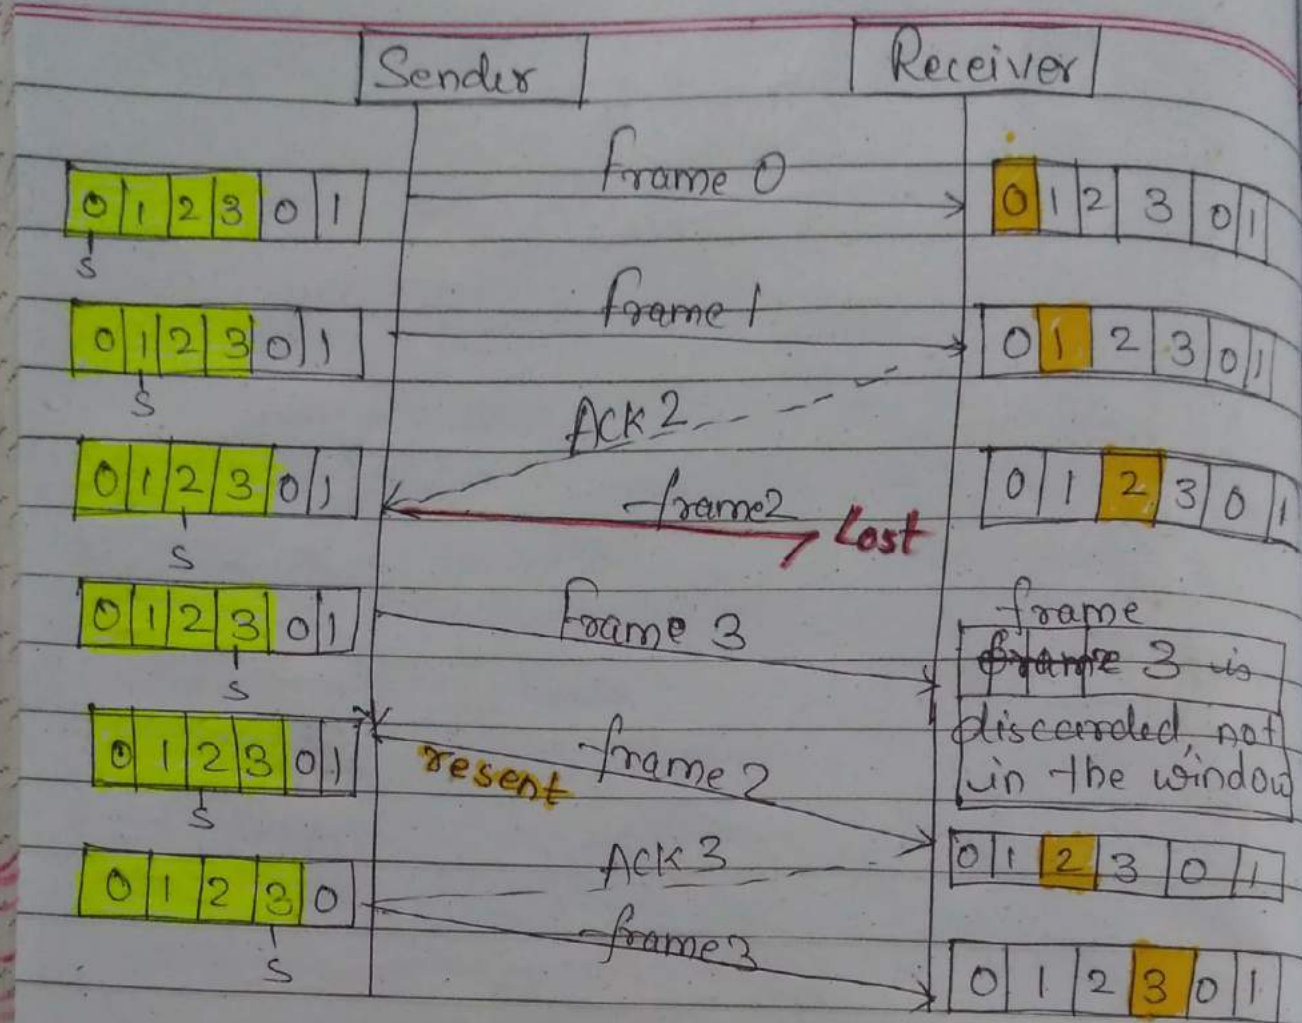 Sender Receiver
frame 0
0 1 2 3 0 1
0 1 2 3 0 1
S
frame 1
0 1 2 3 0 1
0 1 2 3 0 1
S
Ack 2
0 1 2 3 0 1
frame 2
Lost
0 1 2 3 0 1
S
0 1 2 3 0 1
Frame 3
frame
3 is
S
discarded, not
in the window
0 1 2 3 0 1
resent
frame 2
S
Ack 3
0 1 2 3 0 1
0 1 2 3 0
frame 3
S
0 1 2 3 0 1